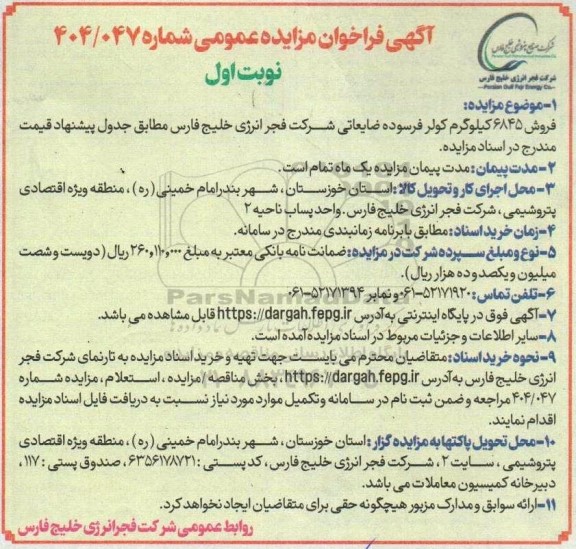 آگهی فراخوان مزایده عمومی شماره ۴۰۴/۰۴۷
نوبت اول
شرکت فجر انرژی خلیج فارس
Persian Gulf Fajr Energy Co
۱-موضوع مزایده:
فروش ۶۸۴۵ کیلوگرم کولر فرسوده ضایعاتی شرکت فجر انرژی خلیج فارس مطابق جدول پیشنهاد قیمت
مندرج در اسناد مزایده.
۲-مدت پیمان: مدت پیمان مزایده یک ماه تمام است.
۳-محل اجرای کار و تحویل کالا: استان خوزستان، شهر بندرامام خمینی (ره)، منطقه ویژه اقتصادی
پتروشیمی، شرکت فجر انرژی خلیج فارس. واحد پساب ناحیه ۲
۴-زمان خرید اسناد: مطابق با برنامه زمانبندی مندرج در سامانه.
۵-نوع و مبلغ سپرده شرکت در مزایده: ضمانت نامه بانکی معتبر به مبلغ ۲۶۰,۱۱۰,۰۰۰ ریال (دویست و شصت
میلیون و یکصد و ده هزار ریال).
۶-تلفن تماس: ۵۲۱۷۱۹۲۰-۰۶۱ و نمابر ۵۲۱۷۱۳۹۴-۰۶۱
۷-آگهی فوق در پایگاه اینترنتی به آدرس https://dargah.fepg.ir قابل مشاهده می باشد.
۸-سایر اطلاعات و جزئیات مربوط در اسناد مزایده آمده است.
۹-نحوه خرید اسناد: متقاضیان محترم می بایست جهت تهیه و خرید اسناد مزایده به تارنمای شرکت فجر
انرژی خلیج فارس به آدرس https://dargah.fepg.ir، بخش مناقصه/مزایده، استعلام، مزایده شماره
۴۰۴/۰۴۷ مراجعه و ضمن ثبت نام در سامانه و تکمیل موارد مورد نیاز نسبت به دریافت فایل اسناد مزایده
اقدام نمایند.
۱۰-محل تحویل پاکتها به مزایده گزار: استان خوزستان، شهر بندرامام خمینی (ره)، منطقه ویژه اقتصادی
پتروشیمی، سایت ۲، شرکت فجر انرژی خلیج فارس، کد پستی: ۶۳۵۶۱۷۸۷۲۱، صندوق پستی: ۱۱۷،
دبیرخانه کمیسیون معاملات می باشد.
۱۱-ارائه سوابق و مدارک مزبور هیچگونه حقی برای متقاضیان ایجاد نخواهد کرد.
روابط عمومی شرکت فجر انرژی خلیج فارس